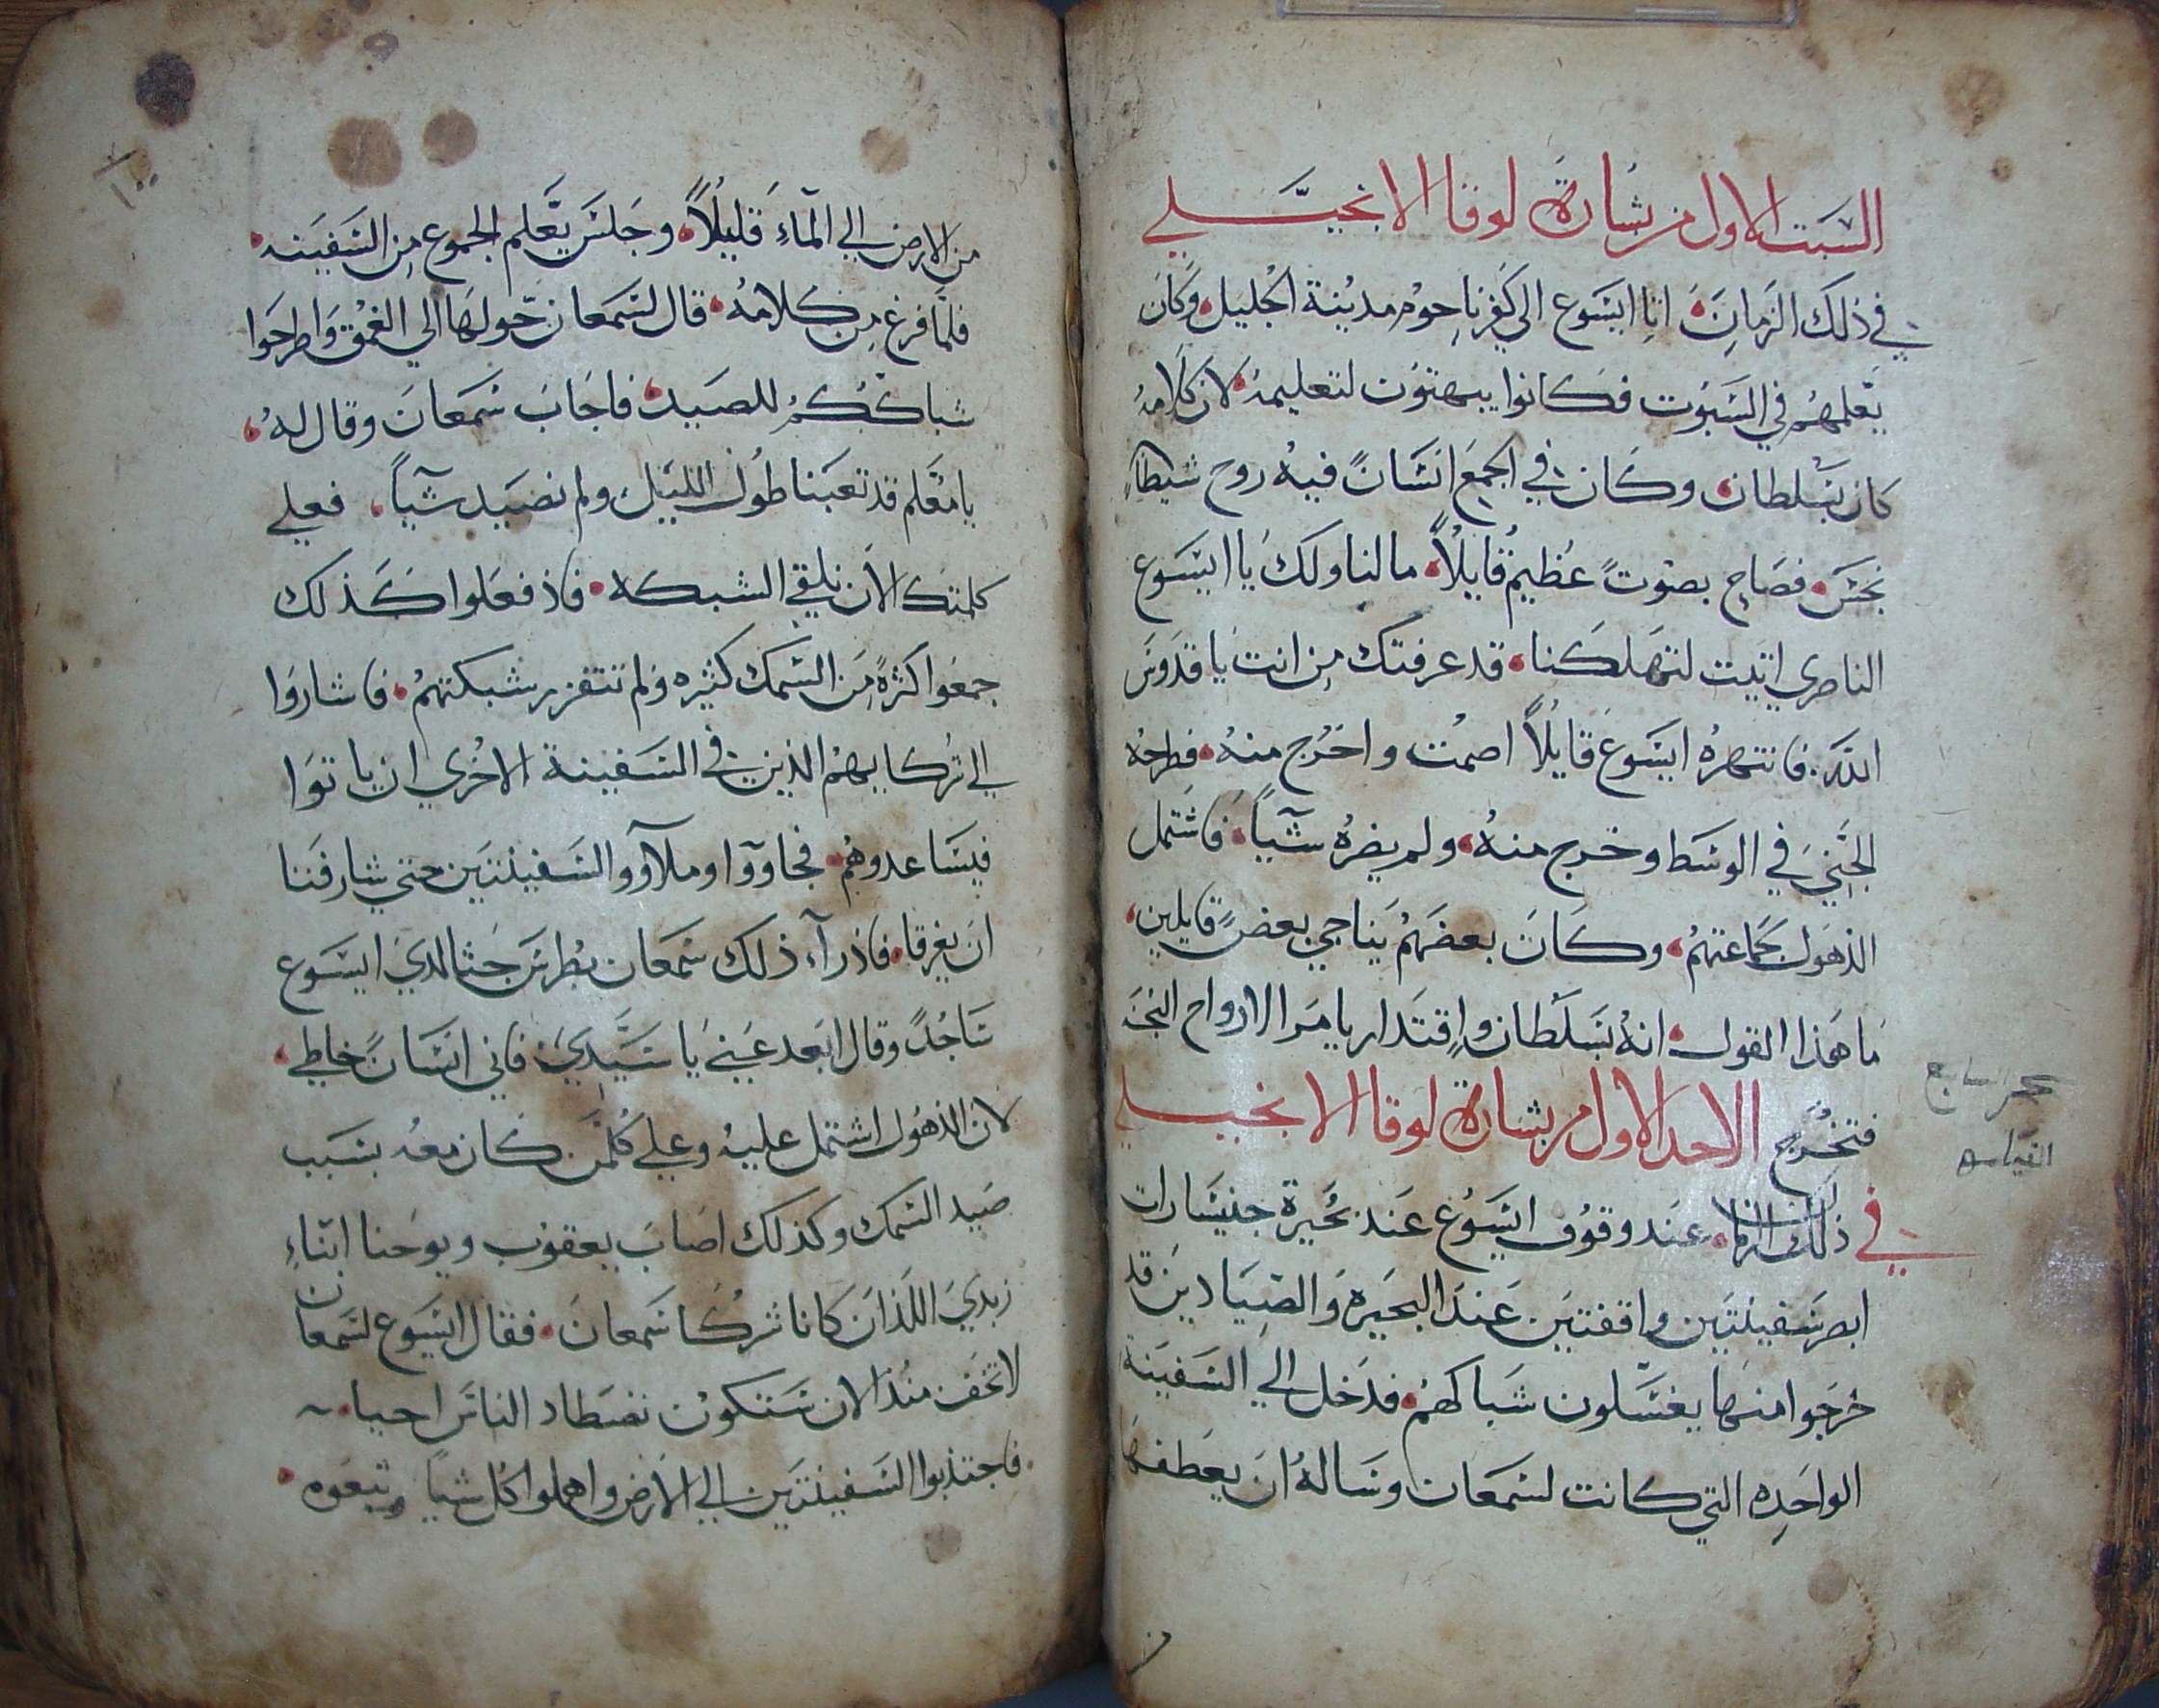 السبت الاول من بشارة لوقا الانجيلي
في ذلك الزمان اتا ايسوع الى كفرناحوم مدينة الجليل وكان
يعلمهم في السبوت فكانوا يبهتون لتعليمه لان كلامه
كان بسلطان وكان في الجمع انسان فيه روح شيطان
نجس فصاح بصوت عظيم قايلاً ما لنا ولك يا ايسوع
الناصري اتيت لتهلكنا قد عرفتك من انت يا قدوس
الله فانتهره ايسوع قايلاً اصمت واخرج منه فطرحه
الجني في الوسط وخرج منه ولم يضره شياً فاشتمل
الذهول جماعتهم وكان بعضهم يناجي بعض قايلين
ما هذا القول انه بسلطان واقتدار يامر الارواح النجسه
فتخرج الاحد الاول من بشارة لوقا الانجيلي
في ذلك الزمان عند وقوف ايسوع عند بحيرة جنيسارات
ابصر سفينتين واقفتين عند البحيره والصيادين قد
خرجوا منها يغسلون شباكهم فدخل الي السفينة
الواحده التي كانت لسمعان وساله ان يعطفها
من الارض الي المآء قليلاً وجلس يعلم الجموع من السفينه
فلما فرغ من كلامه قال لسمعان حولها الي الغمق واطرحوا
شباككم للصيد فاجاب سمعان وقال له
يا معلم قد تعبنا طول الليل ولم نصيد شياً فعلي
كلمتك الان نلقي الشبكه فاذ فعلوا كذلك
جمعوا كثرة من السمك كثيره ولم تتفزر شبكتهم فاشاروا
الي شركايهم الذين في السفينة الاخري ان ياتوا
فيساعدوهم فجاووا وملاوو السفينتين حتي شارفتا
ان يغرقا فاذ رآء ذلك سمعان بطرس جثا لدي ايسوع
ساجداً وقال ابعد عني يا سيدي فاني انسان خاطي
لان الذهول اشتمل عليه وعلي كلمن كان معه بسبب
صيد السمك وكذلك اصاب يعقوب ويوحنا ابناء
زبدي اللذان كانا شركا سمعان فقال ايسوع لسمعان
لا تخف منذ الان ستكون تصطاد الناس احيا
فاجتذبوا السفينتين الي الارض واهملوا كل شياً وتبعوه